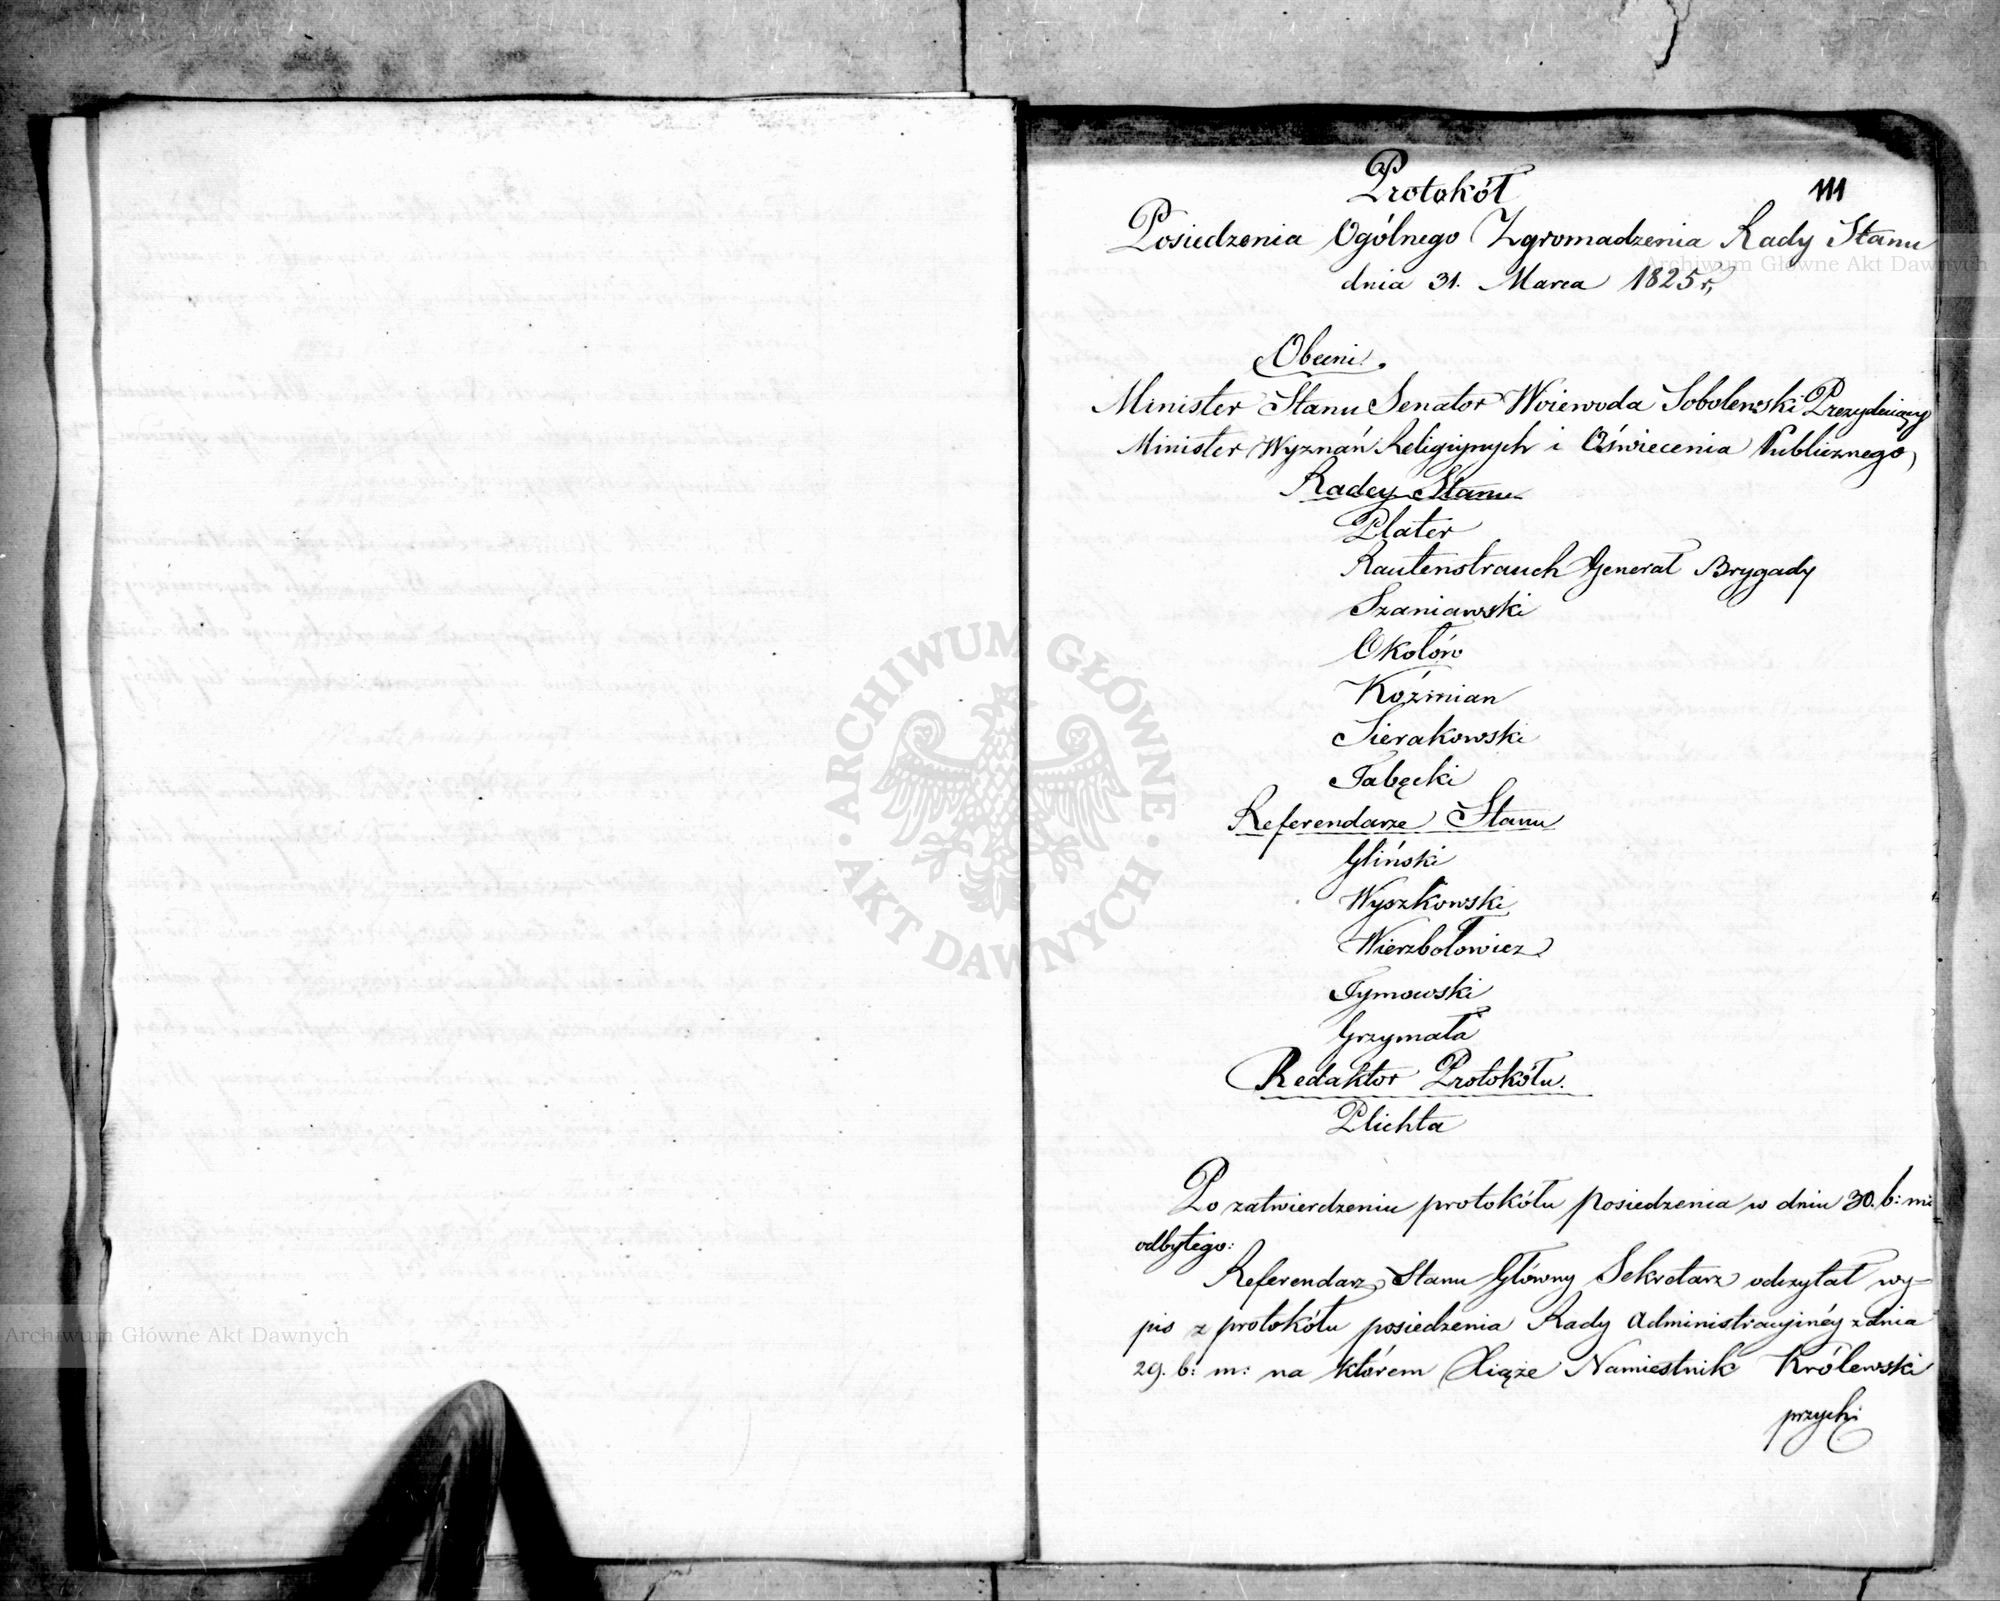 Protokół
111
Posiedzenia Ogólnego Zgromadzenia Rady Stanu
dnia 31. Marca 1825 r,
Obecni.
Minister Stanu Senator Woiewoda Sobolewski Prezyduiący
Minister Wyznań Religiynych i Oświecenia Publicznego,
Radcy Stanu
Plater
Rautenstrauch Generał Brygady
Szaniawski
Okołów
Koźmian
Sierakowski
Tabęcki
Referendarze Stanu
Gliński
Wyszkowski
Wierzbołowicz
Tymowski
Grzymała
Redaktor Protokółu.
Plichta
Po zatwierdzeniu protokółu posiedzenia w dniu 30. b: m:
odbytego:
Referendarz Stanu Główny Sekretarz odczytał wy=
pis z protokółu posiedzenia Rady Administracyjnéy z dnia
29. b: m: na którem Xiąże Namiestnik Królewski
przych:
ARCHIWUM GŁÓWNE AKT DAWNYCH
Archiwum Główne Akt Dawnych
Archiwum Główne Akt Dawnych